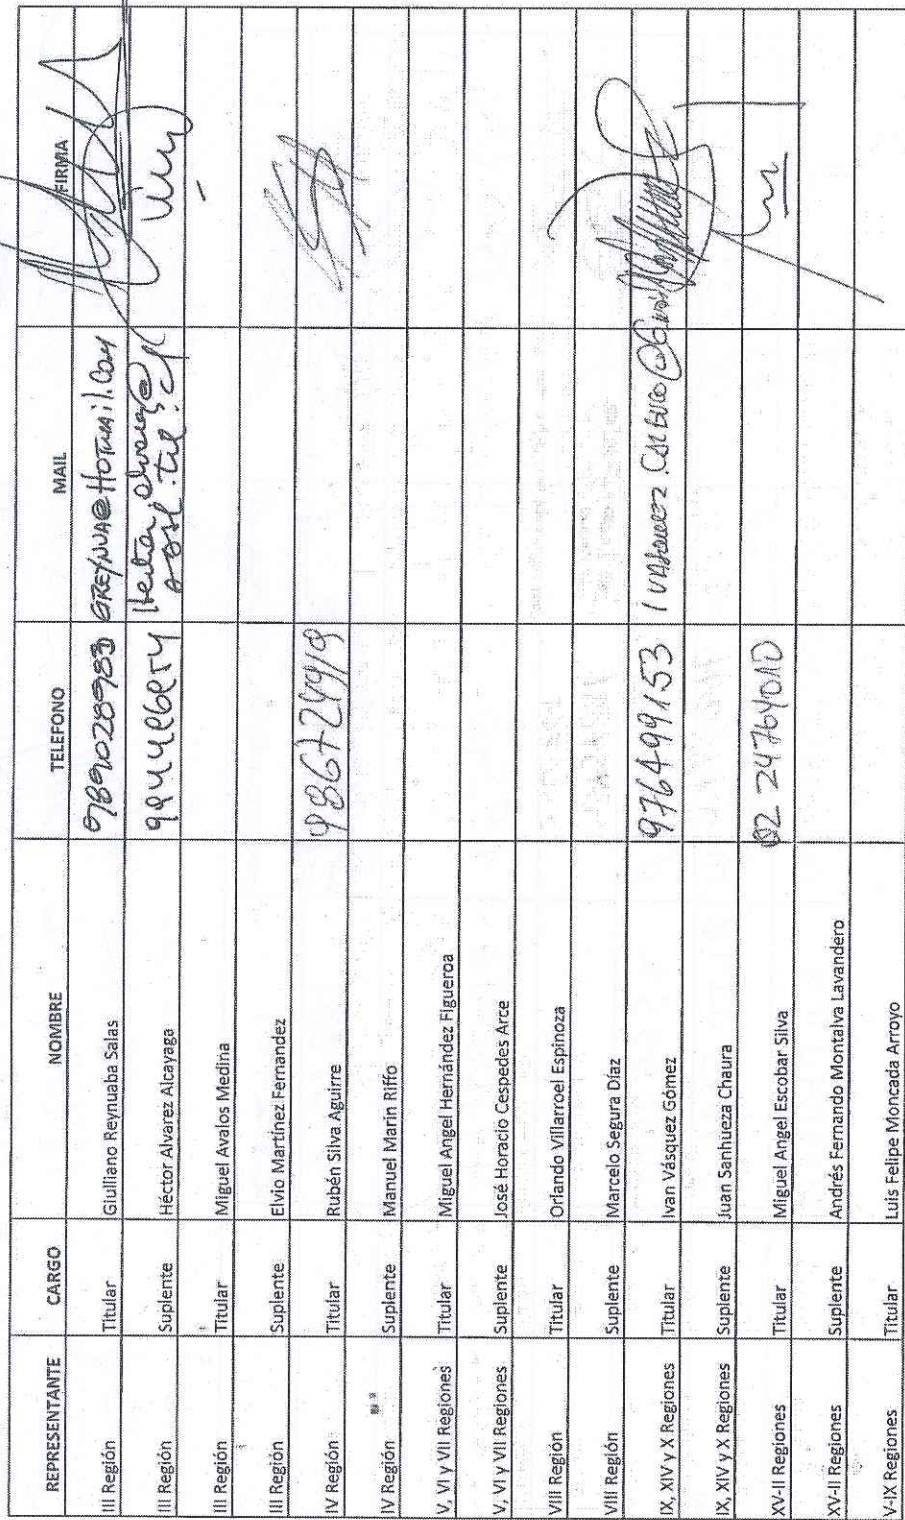 REPRESENTANTE CARGO NOMBRE TELEFONO MAIL FIRMA
III Región Titular Giulliano Reynuaba Salas GREYNUA@HOTMAIL.COM
III Región Suplente Héctor Alvarez Alcayaga
III Región Titular Miguel Avalos Medina
III Región Suplente Elvio Martínez Fernandez
IV Región Titular Rubén Silva Aguirre 986724919
IV Región Suplente Manuel Marin Riffo
V, VI y VII Regiones Titular Miguel Angel Hernández Figueroa
V, VI y VII Regiones Suplente José Horacio Cespedes Arce
VIII Región Titular Orlando Villarroel Espinoza
VIII Región Suplente Marcelo Segura Díaz
IX, XIV y X Regiones Titular Ivan Vásquez Gómez 976499153
IX, XIV y X Regiones Suplente Juan Sanhueza Chaura
XV-II Regiones Titular Miguel Angel Escobar Silva 02 24764010
XV-II Regiones Suplente Andrés Fernando Montalva Lavandero
V-IX Regiones Titular Luis Felipe Moncada Arroyo